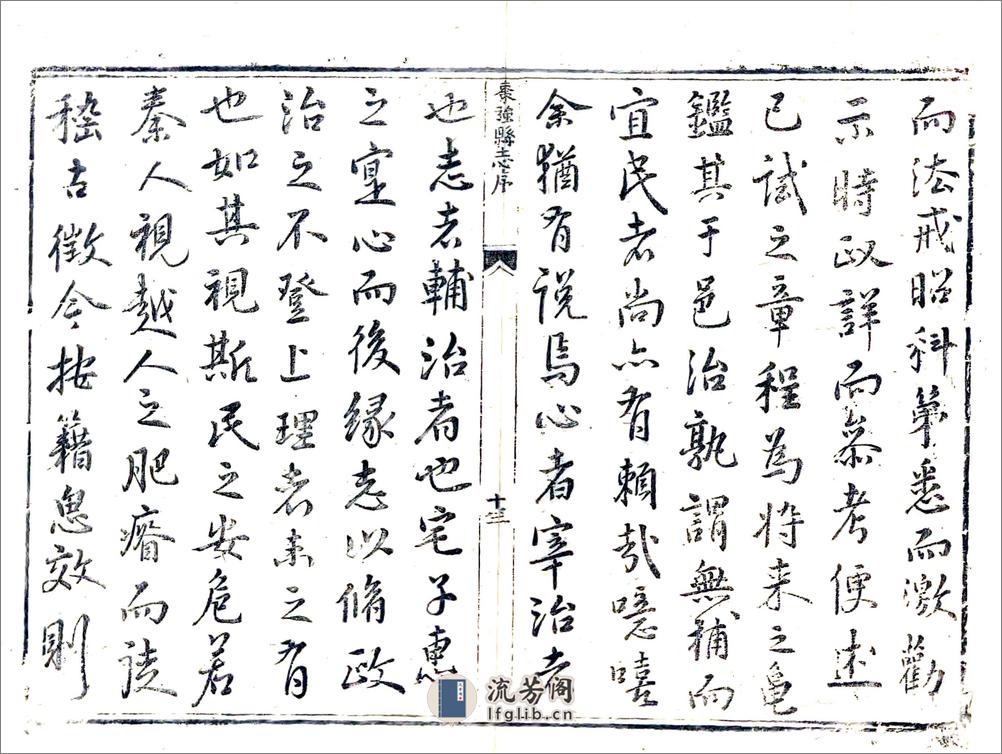 而法戒昭科第悉而激勸
示時政詳而叅考便述
已試之章程為將来之龜
鑑其于邑治孰謂無補而
宜民者尚亦有賴哉噫嘻
余猶有説焉心者宰治者
棗強縣志序
十三
也志者輔治者也宅子惠
之寔心而後緣志以脩政
治之不登上理者未之有
也如其視斯民之安危若
秦人視越人之肥瘠而徒
稽古徵今按籍思效則
流芳阁
lfglib.cn